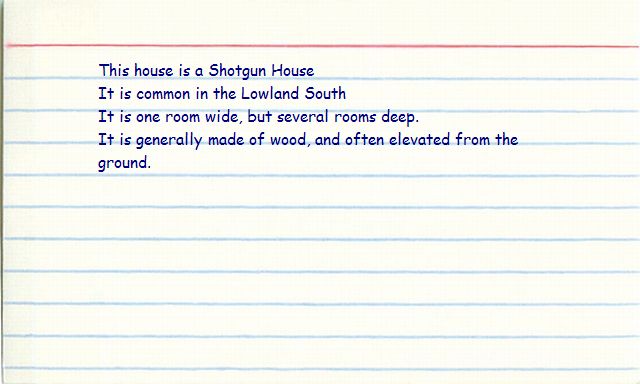 This house is a Shotgun House
It is common in the Lowland South
It is one room wide, but several rooms deep.
It is generally made of wood, and often elevated from the
ground.